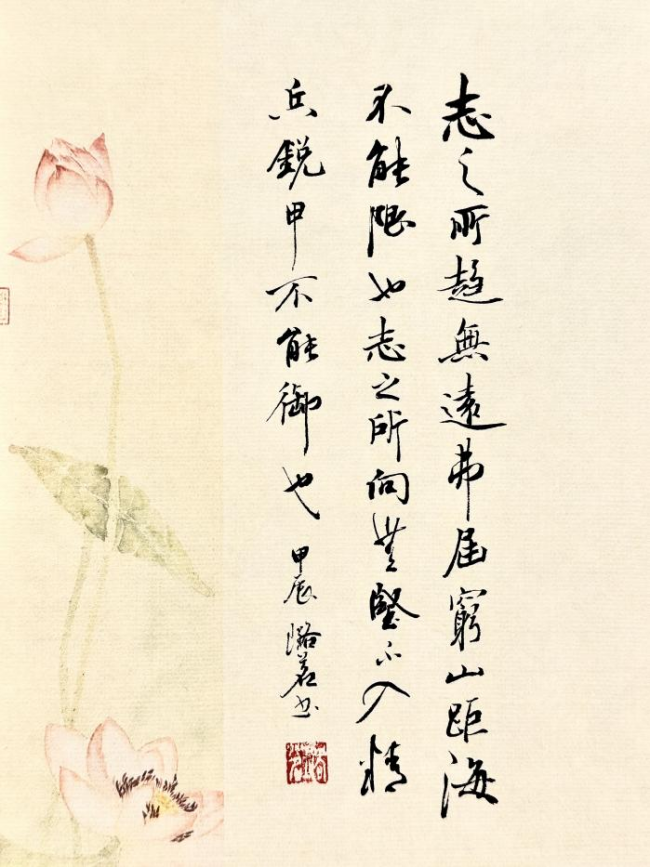 志之所趨無遠弗届窮山距海
不能限也志之所向無堅不入精
兵鋭甲不能御也
甲辰書